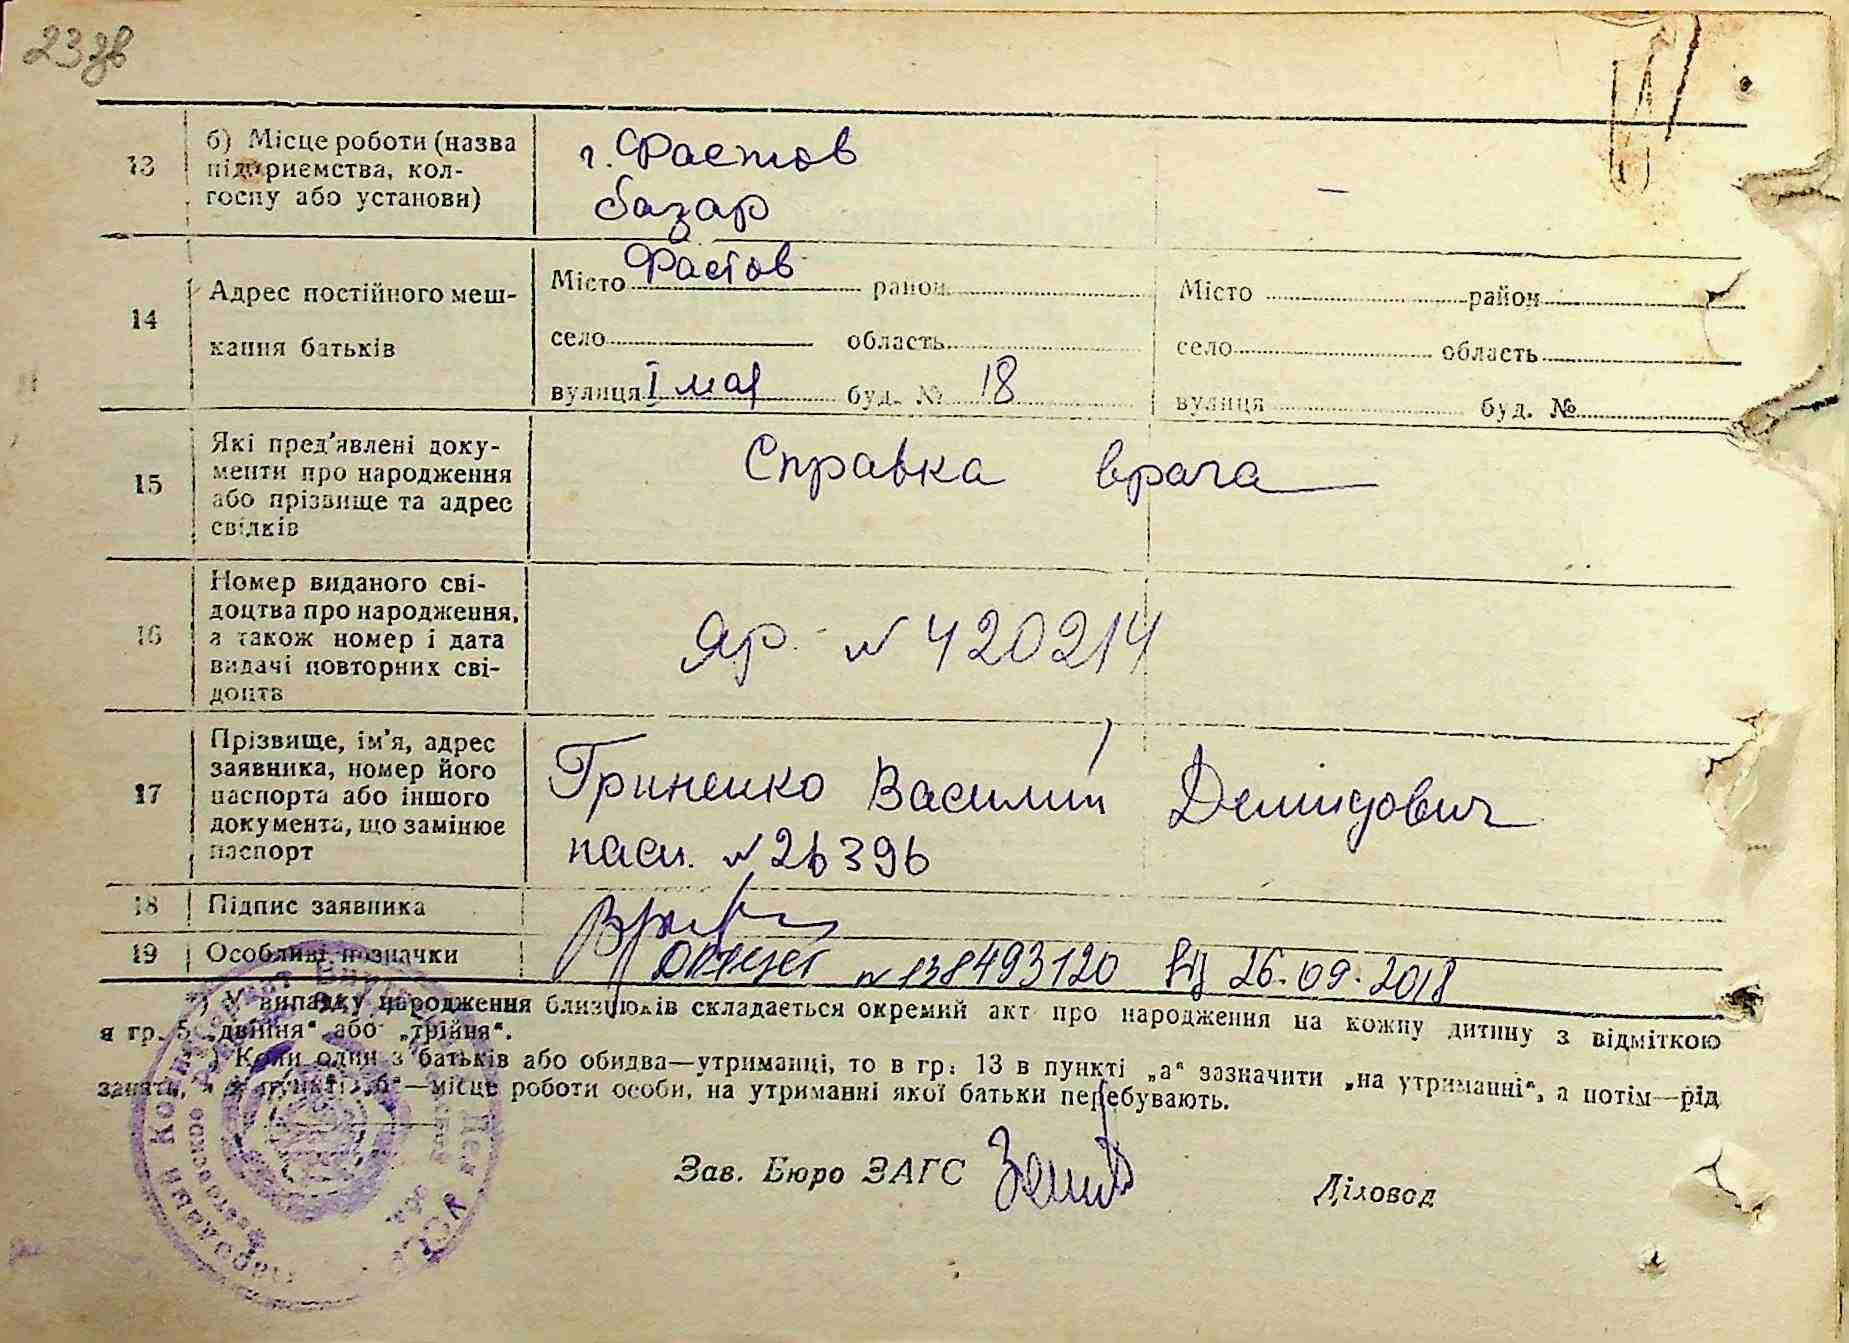 23зв
13
б) Місце роботи (назва
підприємства, кол-
госпу або установи)
г. Фастов
базар
–
14
Адрес постійного меш-
кання батьків
Місто Фастов район
село область
вулиця І мая буд. № 18
Місто район
село область
вулиця буд. №
15
Які пред'явлені доку-
менти про народження
або прізвище та адрес
свідків
Справка врача
16
Номер виданого сві-
доцтва про народження,
а також номер і дата
видачі повторних сві-
доцтв
Яр. № 420214
17
Прізвище, ім'я, адрес
заявника, номер його
паспорта або іншого
документа, що замінює
паспорт
Гриненко Василий Демидович
пасп. № 26396
18
Підпис заявника
19
Особливі позначки
№ 138493120 від 26.09.2018
*) У випадку народження близнюків складається окремий акт про народження на кожну дитину з відміткою
в гр. 5 „двійня“ або „трійня“.
**) Коли один з батьків або обидва—утриманці, то в гр. 13 в пункті „а“ зазначити „на утриманні“, а потім—рід
занять, а в пункті „б“—місце роботи особи, на утриманні якої батьки перебувають.
Зав. Бюро ЗАГС
Діловод